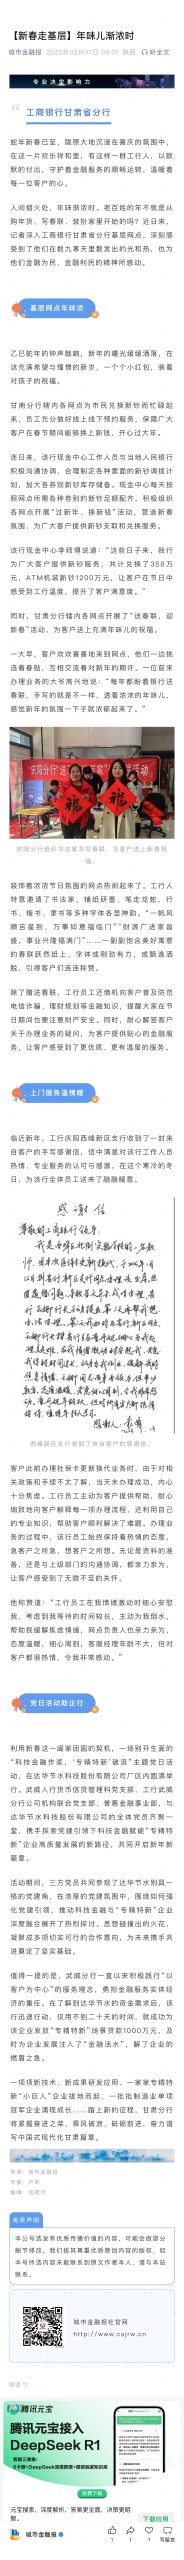 【新春走基层】年味儿渐浓时
城市金融报 2025年02月07日 08:01 陕西 听全文
专业决定影响力
工商银行甘肃省分行
蛇年新春已至，陇原大地沉浸在喜庆的氛围中，
在这一片欢乐祥和里，有这样一群工行人，以默
默的付出，守护着金融服务的顺畅运转，温暖着
每一位客户的心。
人间烟火处，年味渐浓时。老百姓的年不就是从
购年货、写春联、装扮家里开始的吗？近日来，
记者深入工商银行甘肃省分行基层网点，深刻感
受到了他们在数九寒天里散发出的光和热，也为
他们金融为民、金融利民的精神所感动。
基层网点年味浓
乙巳蛇年的钟声敲响，新年的曙光缓缓洒落，在
这充满希望与憧憬的新岁，一个个小红包，装着
对孩子的祝福。
甘肃分行辖内各网点为市民兑换新钞而忙碌起
来，员工充分做好线上线下预约服务，保障广大
客户在春节期间能够换上新钱，开心过大年。
连日来，该行现金中心工作人员与当地人民银行
积极沟通协调，合理制定各种票面的新钞调拨计
划，加大各券别新钞库存储备。现金中心每天按
照网点所需各种券别的新钞足额配齐，积极组织
各网点开展“过新年，换新钱”活动，营造新春
氛围，为广大客户提供新钞支取和兑换服务。
该行现金中心李师傅说道：“这些日子来，我行
为广大客户提供新钞服务，共计兑换了358万
元、ATM机装新钞1200万元，让客户在节日中
感受到工行温度，提升了客户满意度。”
同时，甘肃分行辖内各网点开展了“送春联，迎
新春”活动，为客户送上充满年味儿的祝福。
一大早，客户欢欢喜喜地来到网点，他们一边挑
选着春贴，互相交流着对新年的期许。一位前来
办理业务的大爷高兴地说：“每年都盼着银行送
春联，手写的就是不一样，透着浓浓的年味儿，
感觉新年的氛围一下子就浓郁起来了。”
庆阳分行组织书法家书写春联，为客户送上新春祝
福。
装饰着浓浓节日氛围的网点热闹起来了。工行人
特意邀请了书法家，铺纸研墨，笔走龙蛇，行
书、楷书、隶书等多种字体各显神韵。“一帆风
顺吉星到，万事如意福临门”“财源广进家昌
盛，事业兴隆福满门”……一副副饱含美好寓意
的春联跃然纸上，字体或刚劲有力，或飘逸洒
脱，引得客户们连连称赞。
除了赠送春联，工行员工还借机向客户普及防范
电信诈骗、理财规划等金融知识，提醒大家在节
日期间也要注意财产安全。同时，耐心解答客户
关于办理业务的疑问，为客户提供贴心的金融服
务，让客户感受到了更优质、更有温度的服务。
上门服务温情暖
临近新年，工行庆阳西峰新区支行收到了一封来
自客户的手写感谢信，信中满是对该行工作人员
热情、专业服务的认可与感激，在这个寒冷的冬
日，为该行全体员工送来了融融暖意。
感谢信
西峰新区支行收到了来自客户的感谢信。
客户此前办理社保卡更新换代业务时，由于对相
关政策和手续不太了解，当天未办理成功，内心
十分焦虑。工行员工主动为客户提供帮助，耐心
细致地向客户解释每一项办理流程，还利用自己
的专业知识，帮助客户顺利解决了难题。办理业
务的过程中，该行员工始终保持着热情的态度，
急客户之所急，想客户之所想。无论是资料的准
备，还是与上级部门的沟通协调，都亲力亲为，
让客户感受到了无微不至的关怀。
他称赞道：“工行员工在我情绪激动时细心安慰
我，考虑到我等待的时间较长，主动为我倒水，
帮助我缓解焦虑情绪，网点负责人也亲力亲为，
态度温暖、细心周到，客服经理年龄不大，但对
客户都很热情，令我非常感动。”
党日活动助企行
利用新春这一阖家团圆的契机，一场别开生面的
“科技金融作桨，‘专精特新’破浪”主题党日活
动，在达华节水科技股份有限公司厂区内圆满举
行。武威人行货币信贷管理科党支部、工行武威
分行公司机构联合党支部、普惠金融事业部，与
达华节水科技股份有限公司的全体党员齐聚一
堂，携手探索党建引领下科技金融赋能“专精特
新”企业高质量发展的新路径，共同开启新年新
篇章。
活动期间，三方党员共同参观了达华节水别具一
格的党建角，在浓厚的党建氛围中，围绕如何强
化党建引领，推动科技金融与“专精特新”企业
深度融合展开了热烈探讨。思想碰撞出的火花，
凝聚成多项切实可行的合作意向，为未来携手共
进奠定了坚实基础。
值得一提的是，武威分行一直以来积极践行“以
客户为中心”的服务理念，勇担金融服务实体经
济的重任。在了解到达华节水的资金需求后，该
行迅速行动，仅用不到二十天的时间，就成功为
该企业发放“专精特新”场景贷款1000万元，及
时为企业发展注入了“金融活水”，解了企业的
燃眉之急。
一项项新技术、新成果研发应用、一家家专精特
新“小巨人”企业拔地而起、一批批制造业单项
冠军企业涌现成长……踏上新的征程，甘肃分行
将紧握奋进之桨，乘风破浪，砥砺前进，奋力谱
写中国式现代化甘肃篇章。
来源：城市金融报
免责声明
本公号选发有优质传播价值的内容，可能会做部分
删节修改。我们极其尊重优质原创内容的版权，如
本号所选内容未能联系到原文作者本人，请与本站
联系。
城市金融报社官网
http://www.csjrw.cn
阅读 11
腾讯元宝
腾讯元宝接入
DeepSeek R1
免费下载
元宝搜索，深度解析，答案更全面，决策更明
智。
下载应用
城市金融报
1 1 1 写留言